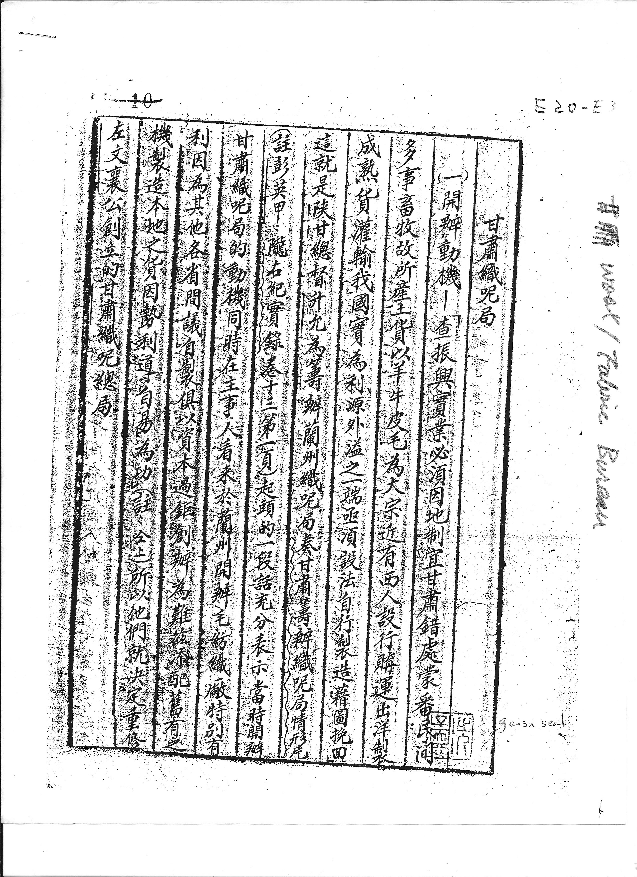 10
E20-E3
甘肅 wool/Fabric Bureau
甘肅織呢局
(一)開辦動機—查振興實業必須因地制宜甘肅錯處蒙番民間
多事畜牧故所產土貨以羊牛皮毛為大宗近有西人設行購運出洋製
成熟貨灌輸我國實為利源外溢之一端亟須設法自行製造藉圖挽回
這就是陝甘總督升允為籌辦蘭州織呢局奏甘肅籌辦織呢局情形
註彭英甲 隴右紀實錄卷十三第一頁起頭的一段話充分表示當時開辦
甘肅織呢局的動機同時在主事人看來於蘭州開辦毛紡織廠特別有
利因為其他各省間議自製俱以資本過鉅創辦為難 配舊有之
機製造本地之貨因勢利導自易為功註 仝上所以他們就決定重修
左文襄公創立的甘肅織呢總局
gansu seal